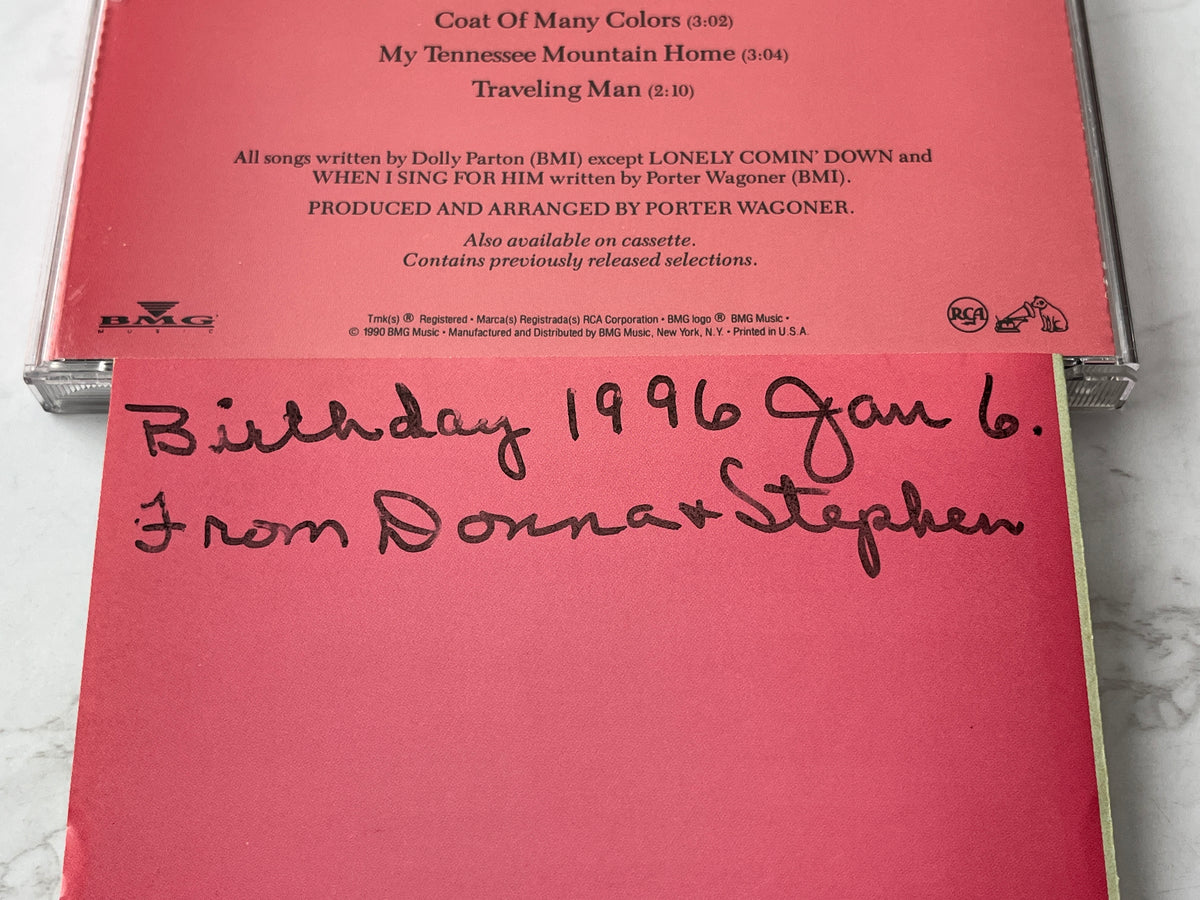 Coat Of Many Colors (3:02)
My Tennessee Mountain Home (3:04)
Traveling Man (2:10)
All songs written by Dolly Parton (BMI) except LONELY COMIN' DOWN and
WHEN I SING FOR HIM written by Porter Wagoner (BMI).
PRODUCED AND ARRANGED BY PORTER WAGONER.
Also available on cassette.
Contains previously released selections.
BMG
MUSIC
Tmk(s) ® Registered • Marca(s) Registrada(s) RCA Corporation • BMG logo ® BMG Music •
© 1990 BMG Music • Manufactured and Distributed by BMG Music, New York, N.Y. • Printed in U.S.A.
RCA
Birthday 1996 Jan 6.
From Donna & Stephen